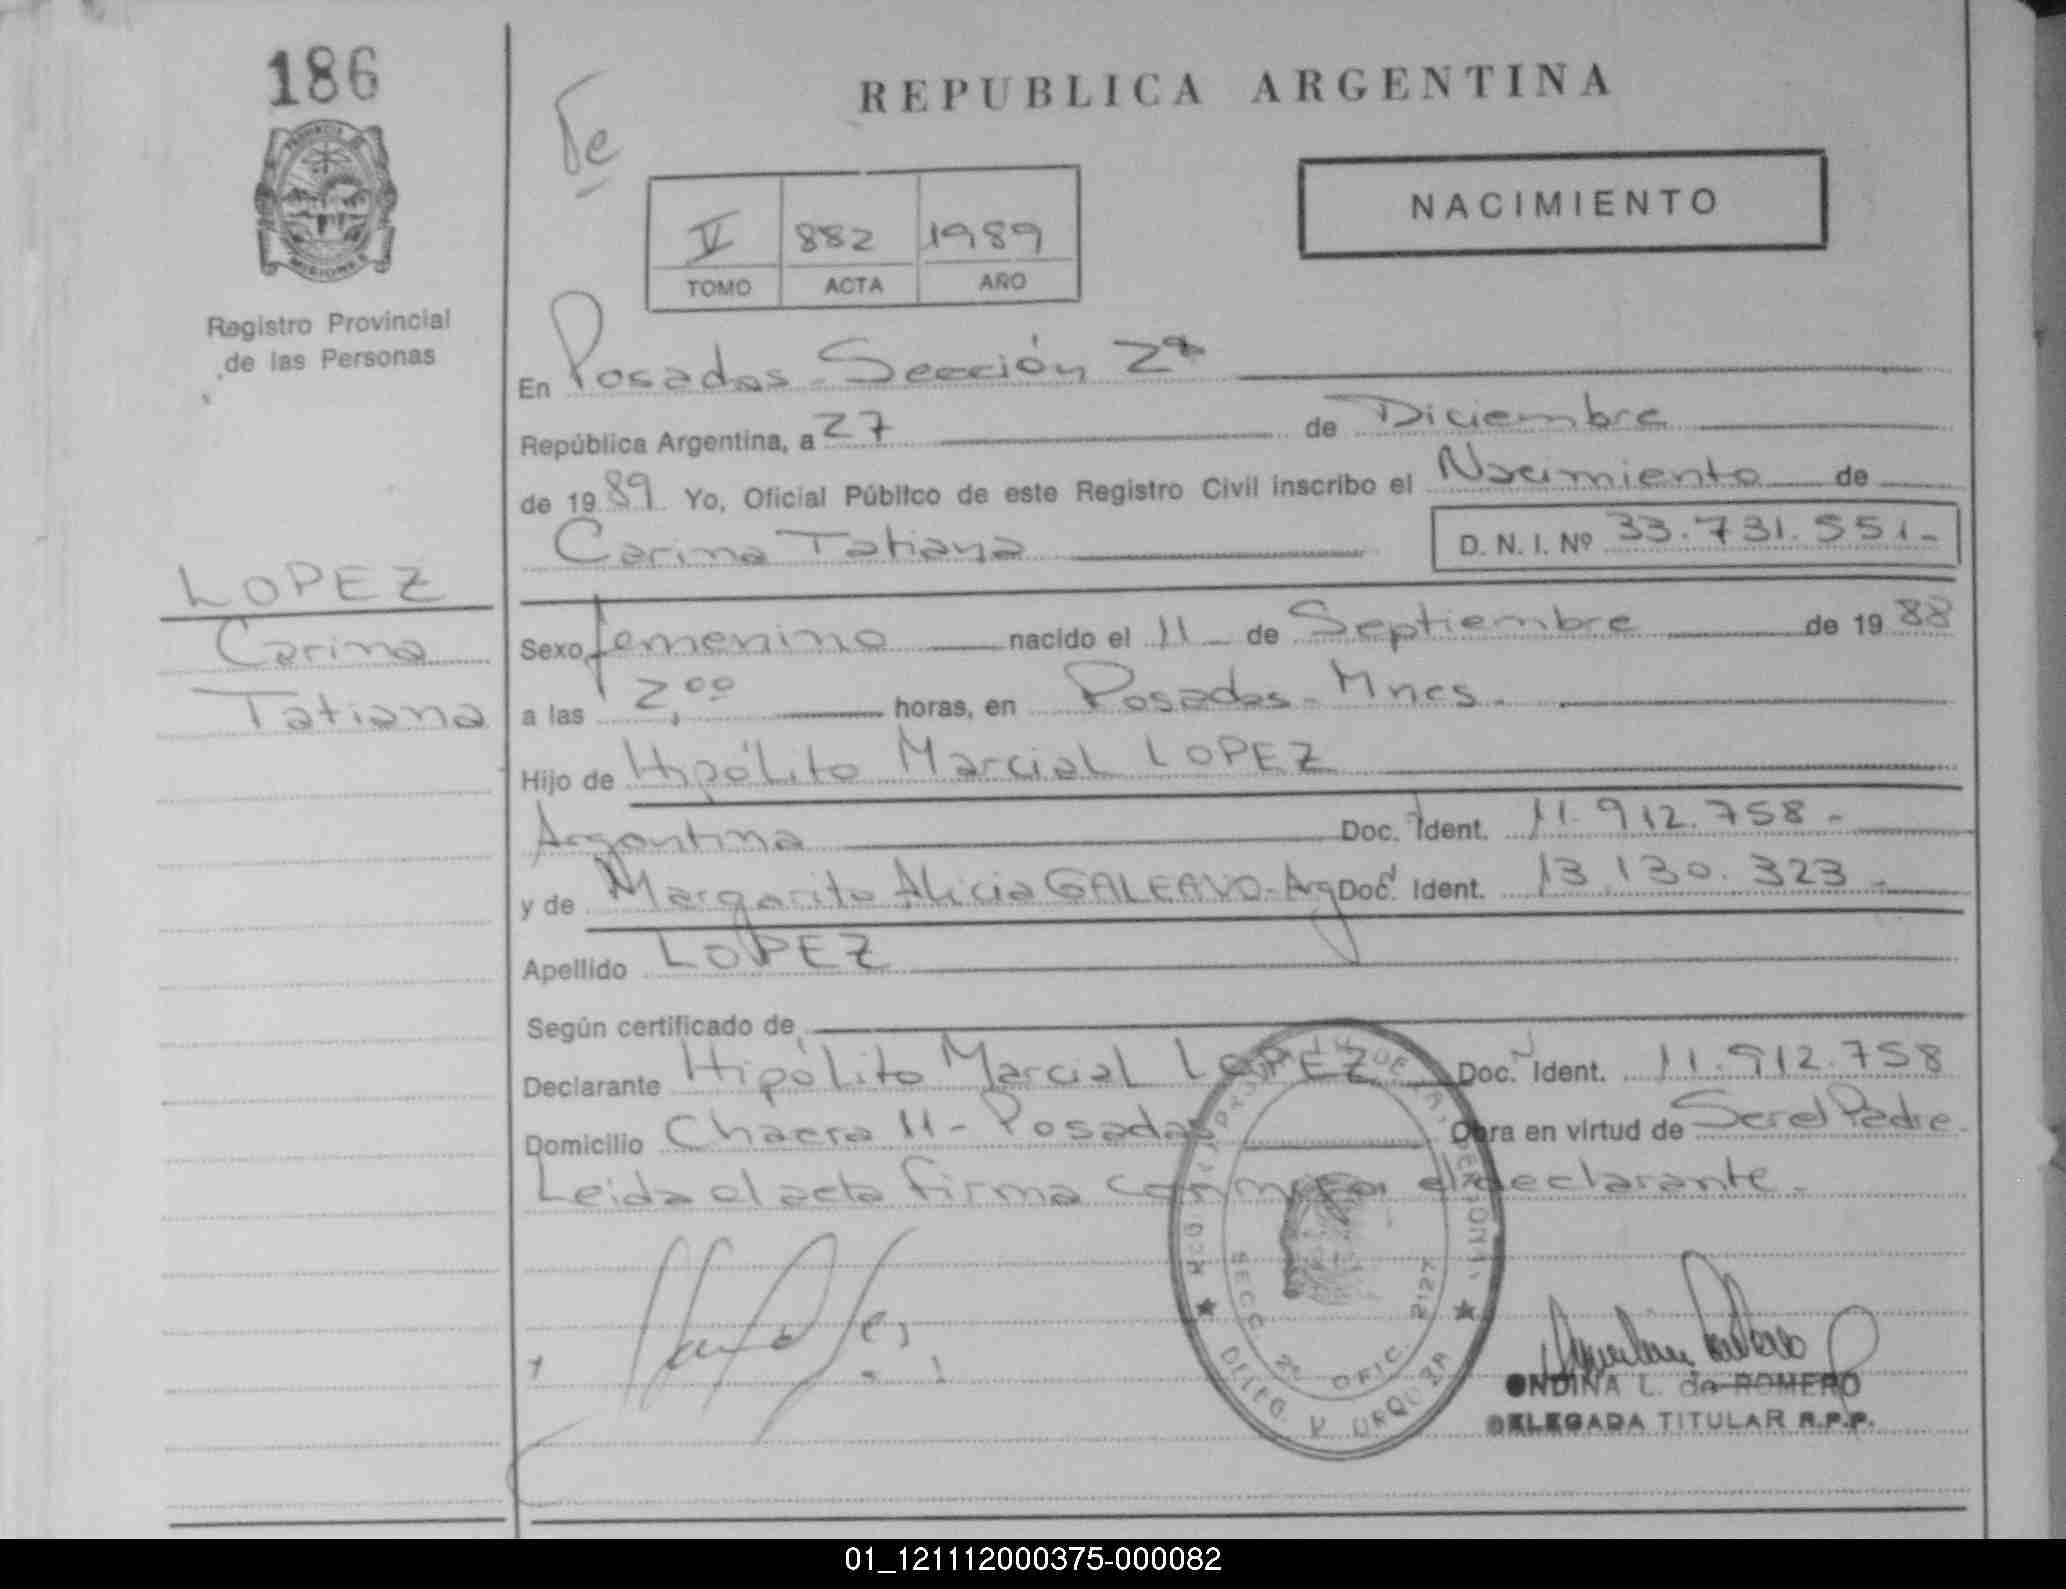 186
REPUBLICA ARGENTINA
NACIMIENTO
V 882 1989
TOMO ACTA AÑO
MISIONES
Registro Provincial
de las Personas
En Posadas - Sección 2ª
República Argentina, a 27 de Diciembre
de 1989 Yo, Oficial Público de este Registro Civil inscribo el Nacimiento de
Carina Tatiana D. N. I. Nº 33.731.551.-
LOPEZ
Carina
Tatiana
Sexo femenino nacido el 11 de Septiembre de 1988
a las 2,00 horas, en Posadas - Mnes.
Hijo de Hipólito Marcial LOPEZ
Argentina Doc. Ident. 11.912.758.-
y de Margarita Alicia GALEANO - Arg Doc. Ident. 13.130.323.-
Apellido LOPEZ
Según certificado de
Declarante Hipólito Marcial LOPEZ Doc. Ident. 11.912.758
Domicilio Chacra 11 - Posadas Obra en virtud de Ser el Padre.
Leida el acta firma conmigo el declarante.
SECC. 2º OFIC. 2127
DELEG. V. URQUIZA
ONDINA L. de ROMERO
DELEGADA TITULAR R.P.P.
01_121112000375-000082